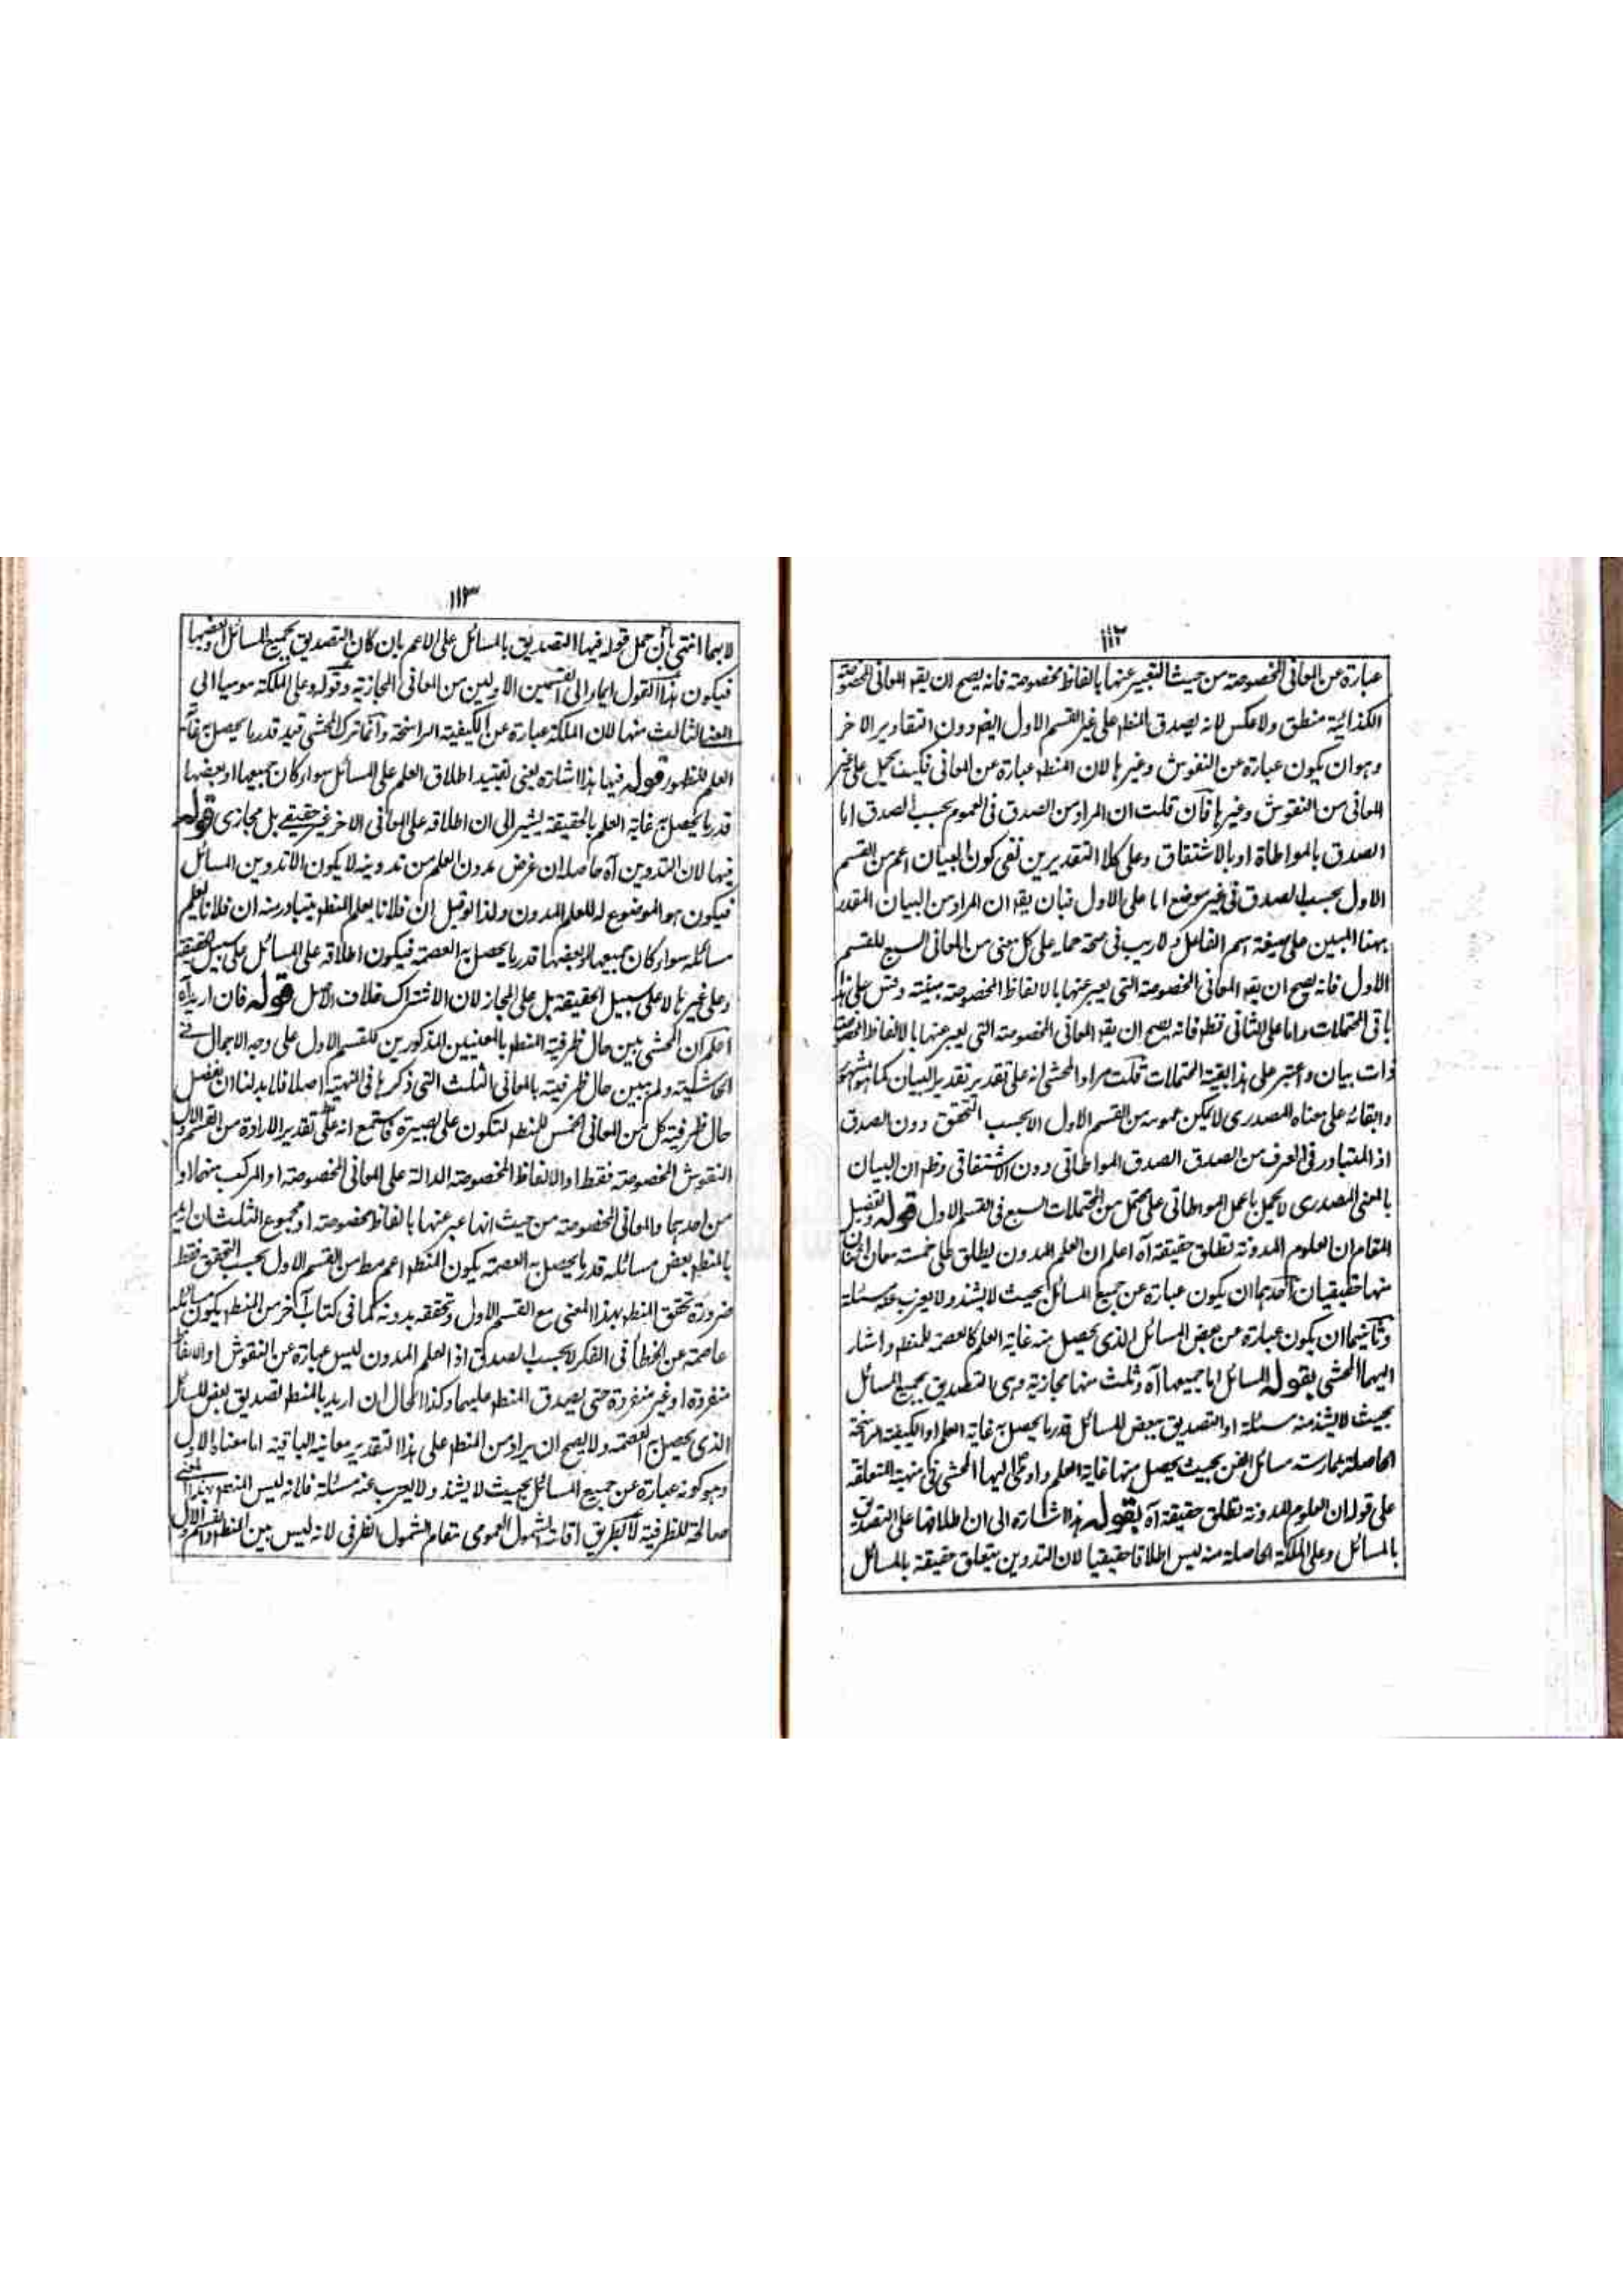 ١١٢
عبارة عن المعانى المخصوصة من حيث التعبير عنها بالفاظ مخصوصة فانه يصح ان يقه المعانى المخصوصة
الكذائية منطق ولا عكس لانه يصدق المنطه على غير القسم الاول ايضه دون التقادير الاخر
وهو ان يكون عبارة عن النقوش وغيرها لان المنطه عبارة عن المعانى فكيف يحمل على غير
المعانى من النقوش وغيرها فان قلت ان المراد من الصدق فى العموم بحسب الصدق اما
الصدق بالمواطاة او بالاشتقاق وعلى كلا التقديرين نفى كون البيان اعم من القسم
الاول بحسب الصدق فى غير موضع اما على الاول فبان يقه ان المراد من البيان المقدر
ههنا المبين على صيغة اسم الفاعل ولا ريب فى صحة حمله على كل معنى من المعانى السبع للقسم
الاول فانه يصح ان يقه المعانى المخصوصة التى يعبر عنها بالالفاظ المخصوصة مبينة وقس على هذا
باقى المحتملات واما على الثانى فظه فانه يصح ان يقه المعانى المخصوصة التى يعبر عنها بالالفاظ المخصوصة
ذات بيان واعتبر على هذا بقية المحتملات قلت مراد المحشى انه على تقدير تقدير البيان كما هو المشهور
وابقائه على معناه المصدرى لا يمكن عمومه من القسم الاول الا بحسب التحقق دون الصدق
اذ المتبادر فى العرف من الصدق الصدق المواطاتى دون الاشتقاقى وظه ان البيان
بالمعنى المصدرى لا يحمل بالحمل المواطاتى على محتمل من المحتملات السبع فى القسم الاول قوله وتفصيل
المقام ان العلوم المدونة تطلق حقيقة آه اعلم ان العلم المدون يطلق على خمسة معان اثنان
منها حقيقيان احدهما ان يكون عبارة عن جميع المسائل بحيث لا يشذ ولا يعزب عنه مسئلة
وثانيهما ان يكون عبارة عن بعض المسائل الذى يحصل منه غاية العلم كالعصمة للمنطه واشار
اليهما المحشى بقوله المسائل اما جميعها آه وثلث منها مجازية وهى التصديق بجميع المسائل
بحيث لا يشذ منه مسئلة او التصديق ببعض المسائل قدر ما يحصل به غاية العلم او الكيفية الراسخة
الحاصلة بممارسة مسائل الفن بحيث يحصل منها غاية العلم واومى اليها المحشى فى منهية المتعلقة
على قوله ان العلوم المدونة تطلق حقيقة آه بقوله هذا اشارة الى ان اطلاقها على التصديق
بالمسائل وعلى الملكة الحاصلة منه ليس اطلاقا حقيقيا لان التدوين يتعلق حقيقة بالمسائل
١١٣
لا بهما انتهى بان حمل قوله فيها التصديق بالمسائل على الاعم بان كان التصديق بجميع المسائل او بعضها
فيكون هذا القول ايماء الى القسمين الاولين من المعانى المجازية وقوله وعلى الملكة موميا الى
المعنى الثالث منها لان الملكة عبارة عن الكيفية الراسخة وانما ترك المحشى قيد قدر ما يحصل به غاية
العلم للظهور قوله فيها هذا اشارة يعنى تقييد اطلاق العلم على المسائل سواء كان جميعها او بعضها
قدر ما يحصل به غاية العلم بالحقيقة يشير الى ان اطلاقه على المعانى الاخر غير حقيقى بل مجازى قوله
فيها لان التدوين آه حاصله ان غرض مدون العلم من تدوينه لا يكون الا تدوين المسائل
فيكون هو الموضوع له للعلم المدون ولذا لو قيل ان فلانا يعلم المنطه يتبادر منه ان فلانا يعلم
مسائله سواء كان جميعها او بعضها قدر ما يحصل به العصمة فيكون اطلاقه على المسائل على سبيل الحقيقة
وعلى غيرها لا على سبيل الحقيقة بل على المجاز لان الاشتراك خلاف الاصل قوله فان اريد آه
اعلم ان المحشى بين حال ظرفية المنطه بالمعنيين المذكورين للقسم الاول على وجه الاجمال فى
الحاشية ولم يبين حال ظرفيته بالمعانى الثلث التى ذكرها فى المنهية اصلا فلا بد لنا ان نفصل
حال ظرفية كل من المعانى الخمس للمنطه لتكون على بصيرة فاستمع انه على تقدير الارادة من القسم الاول
النقوش المخصوصة فقط او الالفاظ المخصوصة الدالة على المعانى المخصوصة او المركب منهما او
من احدهما والمعانى المخصوصة من حيث انها عبر عنها بالفاظ مخصوصة او مجموع الثلث ان اريد
بالمنطه بعض مسائله قدر ما يحصل به العصمة يكون المنطه اعم مط من القسم الاول بحسب التحقق فقط
ضرورة تحقق المنطه بهذا المعنى مع القسم الاول وتحققه بدونه كما فى كتاب آخر من المنطه يكون مسائله
عاصمة عن الخطأ فى الفكر لا بحسب الصدق اذ العلم المدون ليس عبارة عن النقوش او الالفاظ
منفردة او غير منفردة حتى يصدق المنطه عليهما وكذا الحال ان اريد بالمنطه تصديق بعض المسائل
الذى يحصل به العصمة ولا يصح ان يراد من المنطه على هذا التقدير معانيه الباقية اما معناه الاول
وهو كونه عبارة عن جميع المسائل بحيث لا يشذ ولا يعزب عنه مسئلة فلانه ليس المنطه بهذا المعنى
صالحة للظرفية لا بطريق اقامة الشمول العمومى مقام الشمول الظرفى لانه ليس بين المنطه والقسم الاول